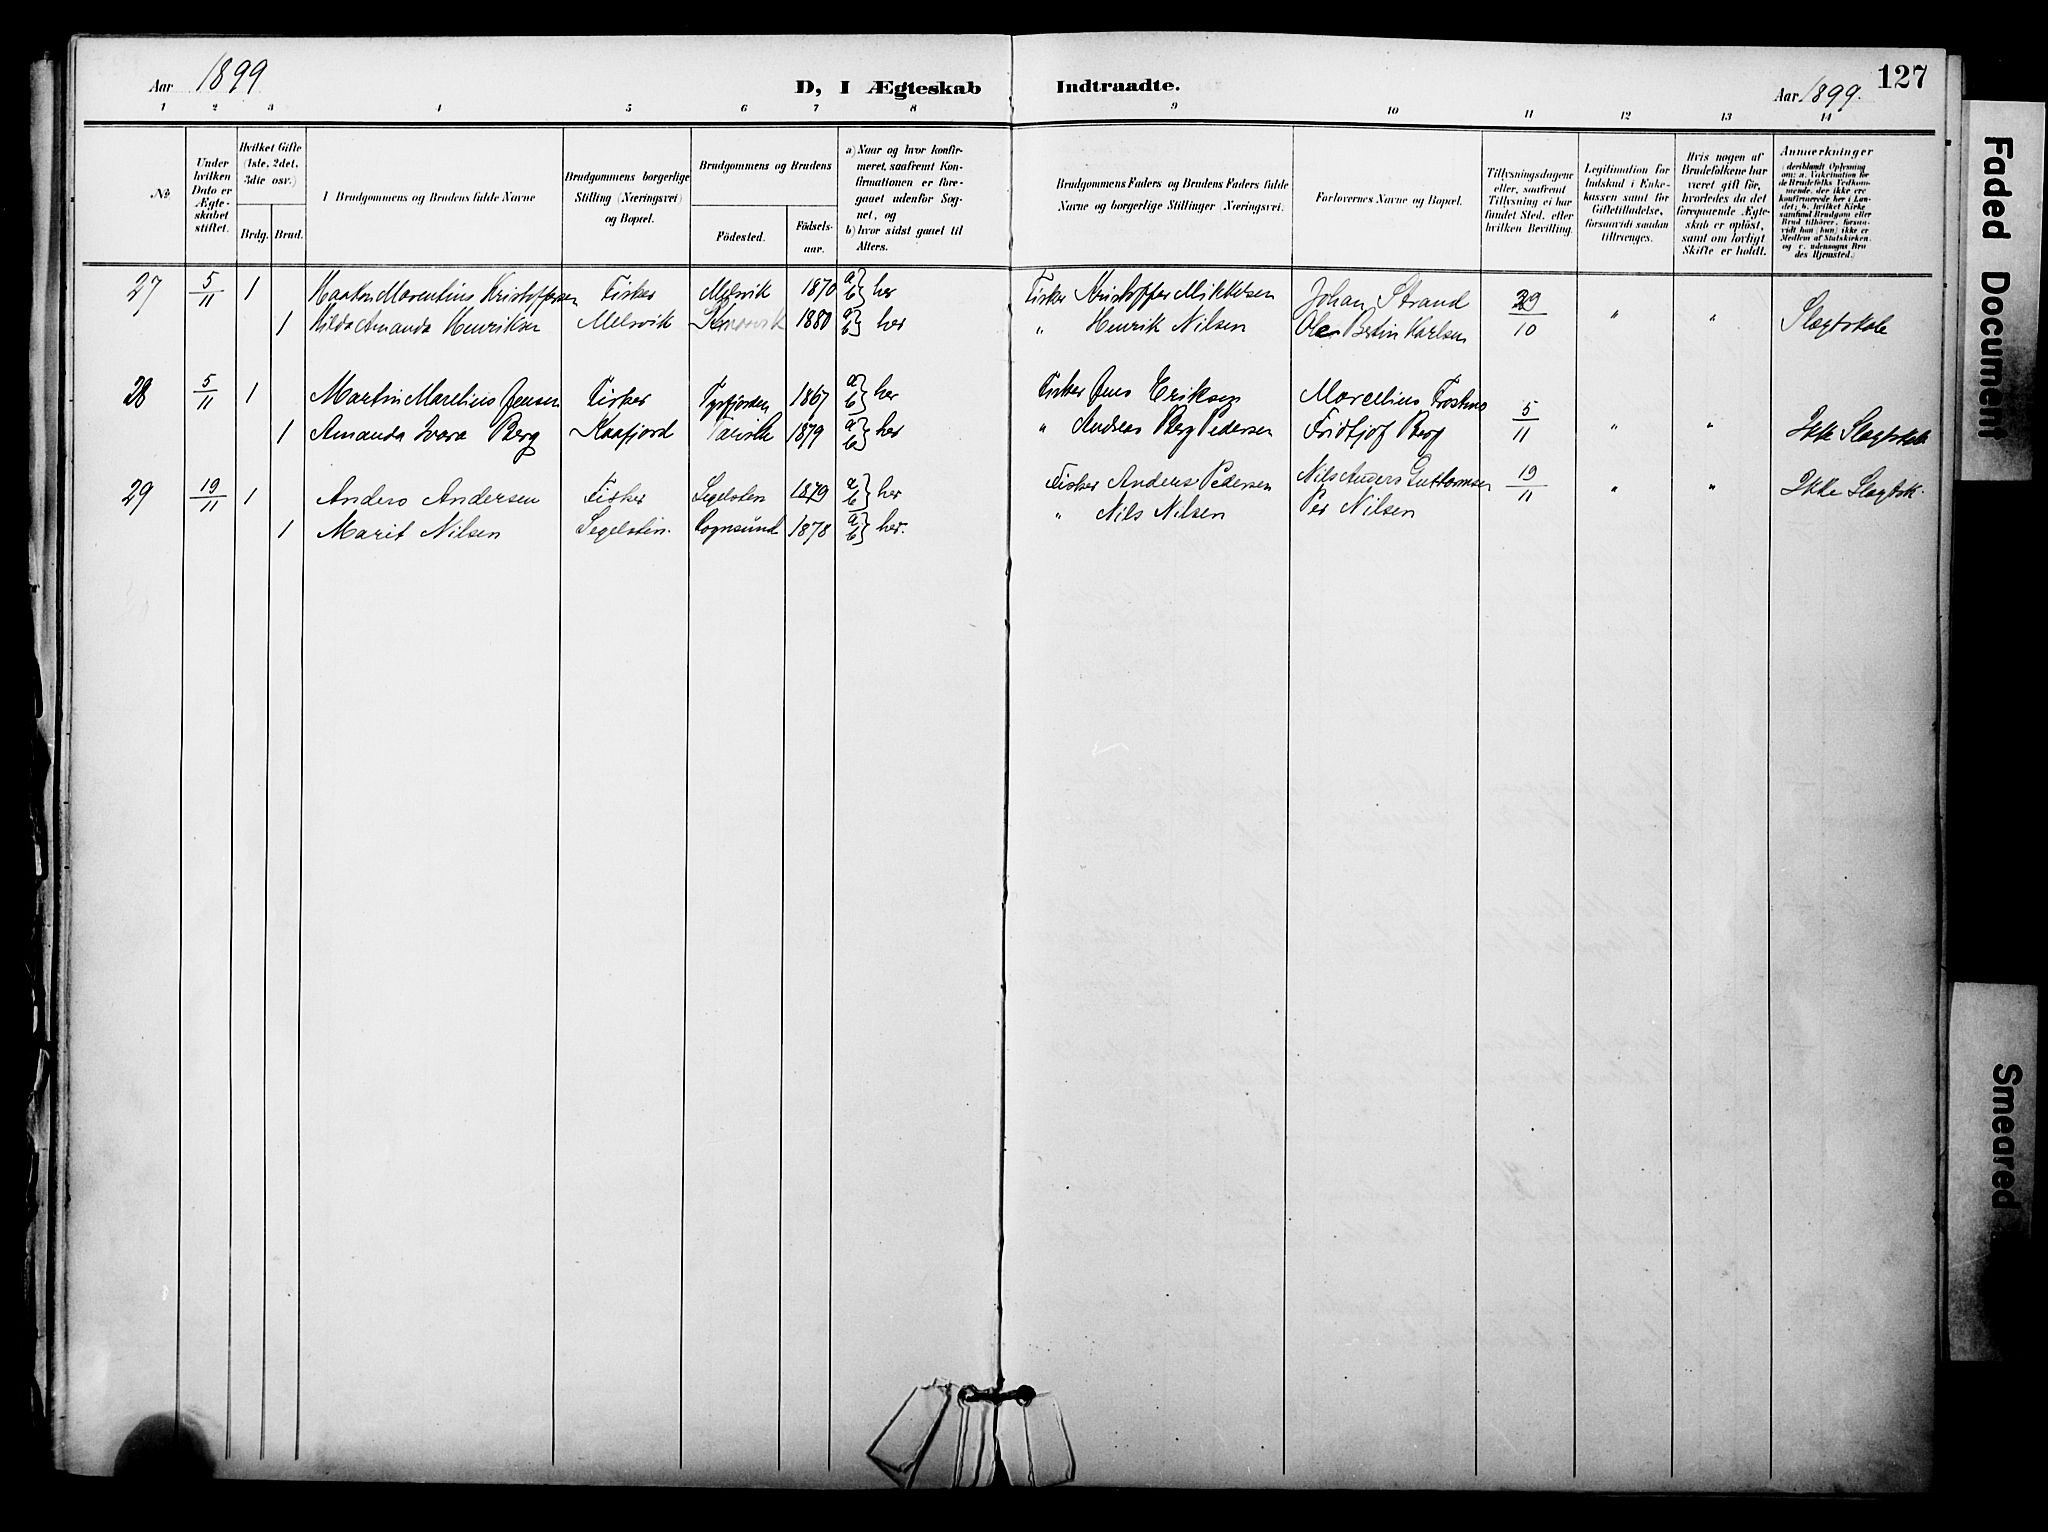 Aar 1899
D, I Ægteskab Indtraadte.
Aar 1899. 127
1 2 3 4 5 6 7 8 9 10 11 12 13 14
No.
Under hvilken Dato er Ægteskabet stiftet.
Hvilket Gifte (1ste, 2det, 3die osv.)
Brdg. Brud.
Brudgommens og Brudens fulde Navne
Brudgommens borgerlige Stilling (Næringsvei) og Bopæl.
Brudgommens og Brudens
Födested. Födselsaar.
a) Naar og hvor konfirmeret, saafremt Konfirmationen er foregaaet udenfor Sognet, og
b) hvor sidst gaaet til Alters.
Brudgommens Faders og Brudens Faders fulde Navne og borgerlige Stillinger (Næringsvei.
Forlovernes Navne og Bopæl.
Tillysningsdagene eller, saafremt Tillysning ei har fundet Sted, efter hvilken Bevilling.
Legitimation for Indskud i Enkekassen samt for Giftetilladelse, forsaavidt saadan tiltrænges.
Hvis nogen af Brudefolkene har været gift för, hvorledes da det foregaaende Ægteskab er oplöst, samt om lovligt Skifte er holdt.
Anmærkninger
27 5/11 1 Haakon Morentius Kristoffersen Fisker Melsvik 1870 a) b) her Fisker Kristoffer Mikkelsen Johan Strand 29/10 " " Slegtskab
1 Hilda Amanda Henriksen Melsvik 1880 a) b) her " Henrik Nilsen Ole Bertin Karlsen
28 5/11 1 Martin Marelius Jensen Fisker Tysfjorden 1867 a) b) her Fisker Jens Eriksen Marcelius 5/11 " " Ikke Slegtskab
1 Amanda Ivara Berg Kaafjord Talvik 1879 a) b) her " Andreas Berg Pedersen Fridtjof Berg
29 19/11 1 Anders Andersen Fisker Segelsten 1879 a) b) her Fisker Anders Pedersen Nils Anders Guttormsen 19/11 " " Ikke Slegtsk.
1 Marit Nilsen Segelsten. Rognsund 1878 a) b) her. " Nils Nilsen Per Nilsen
Faded Document
Smeared